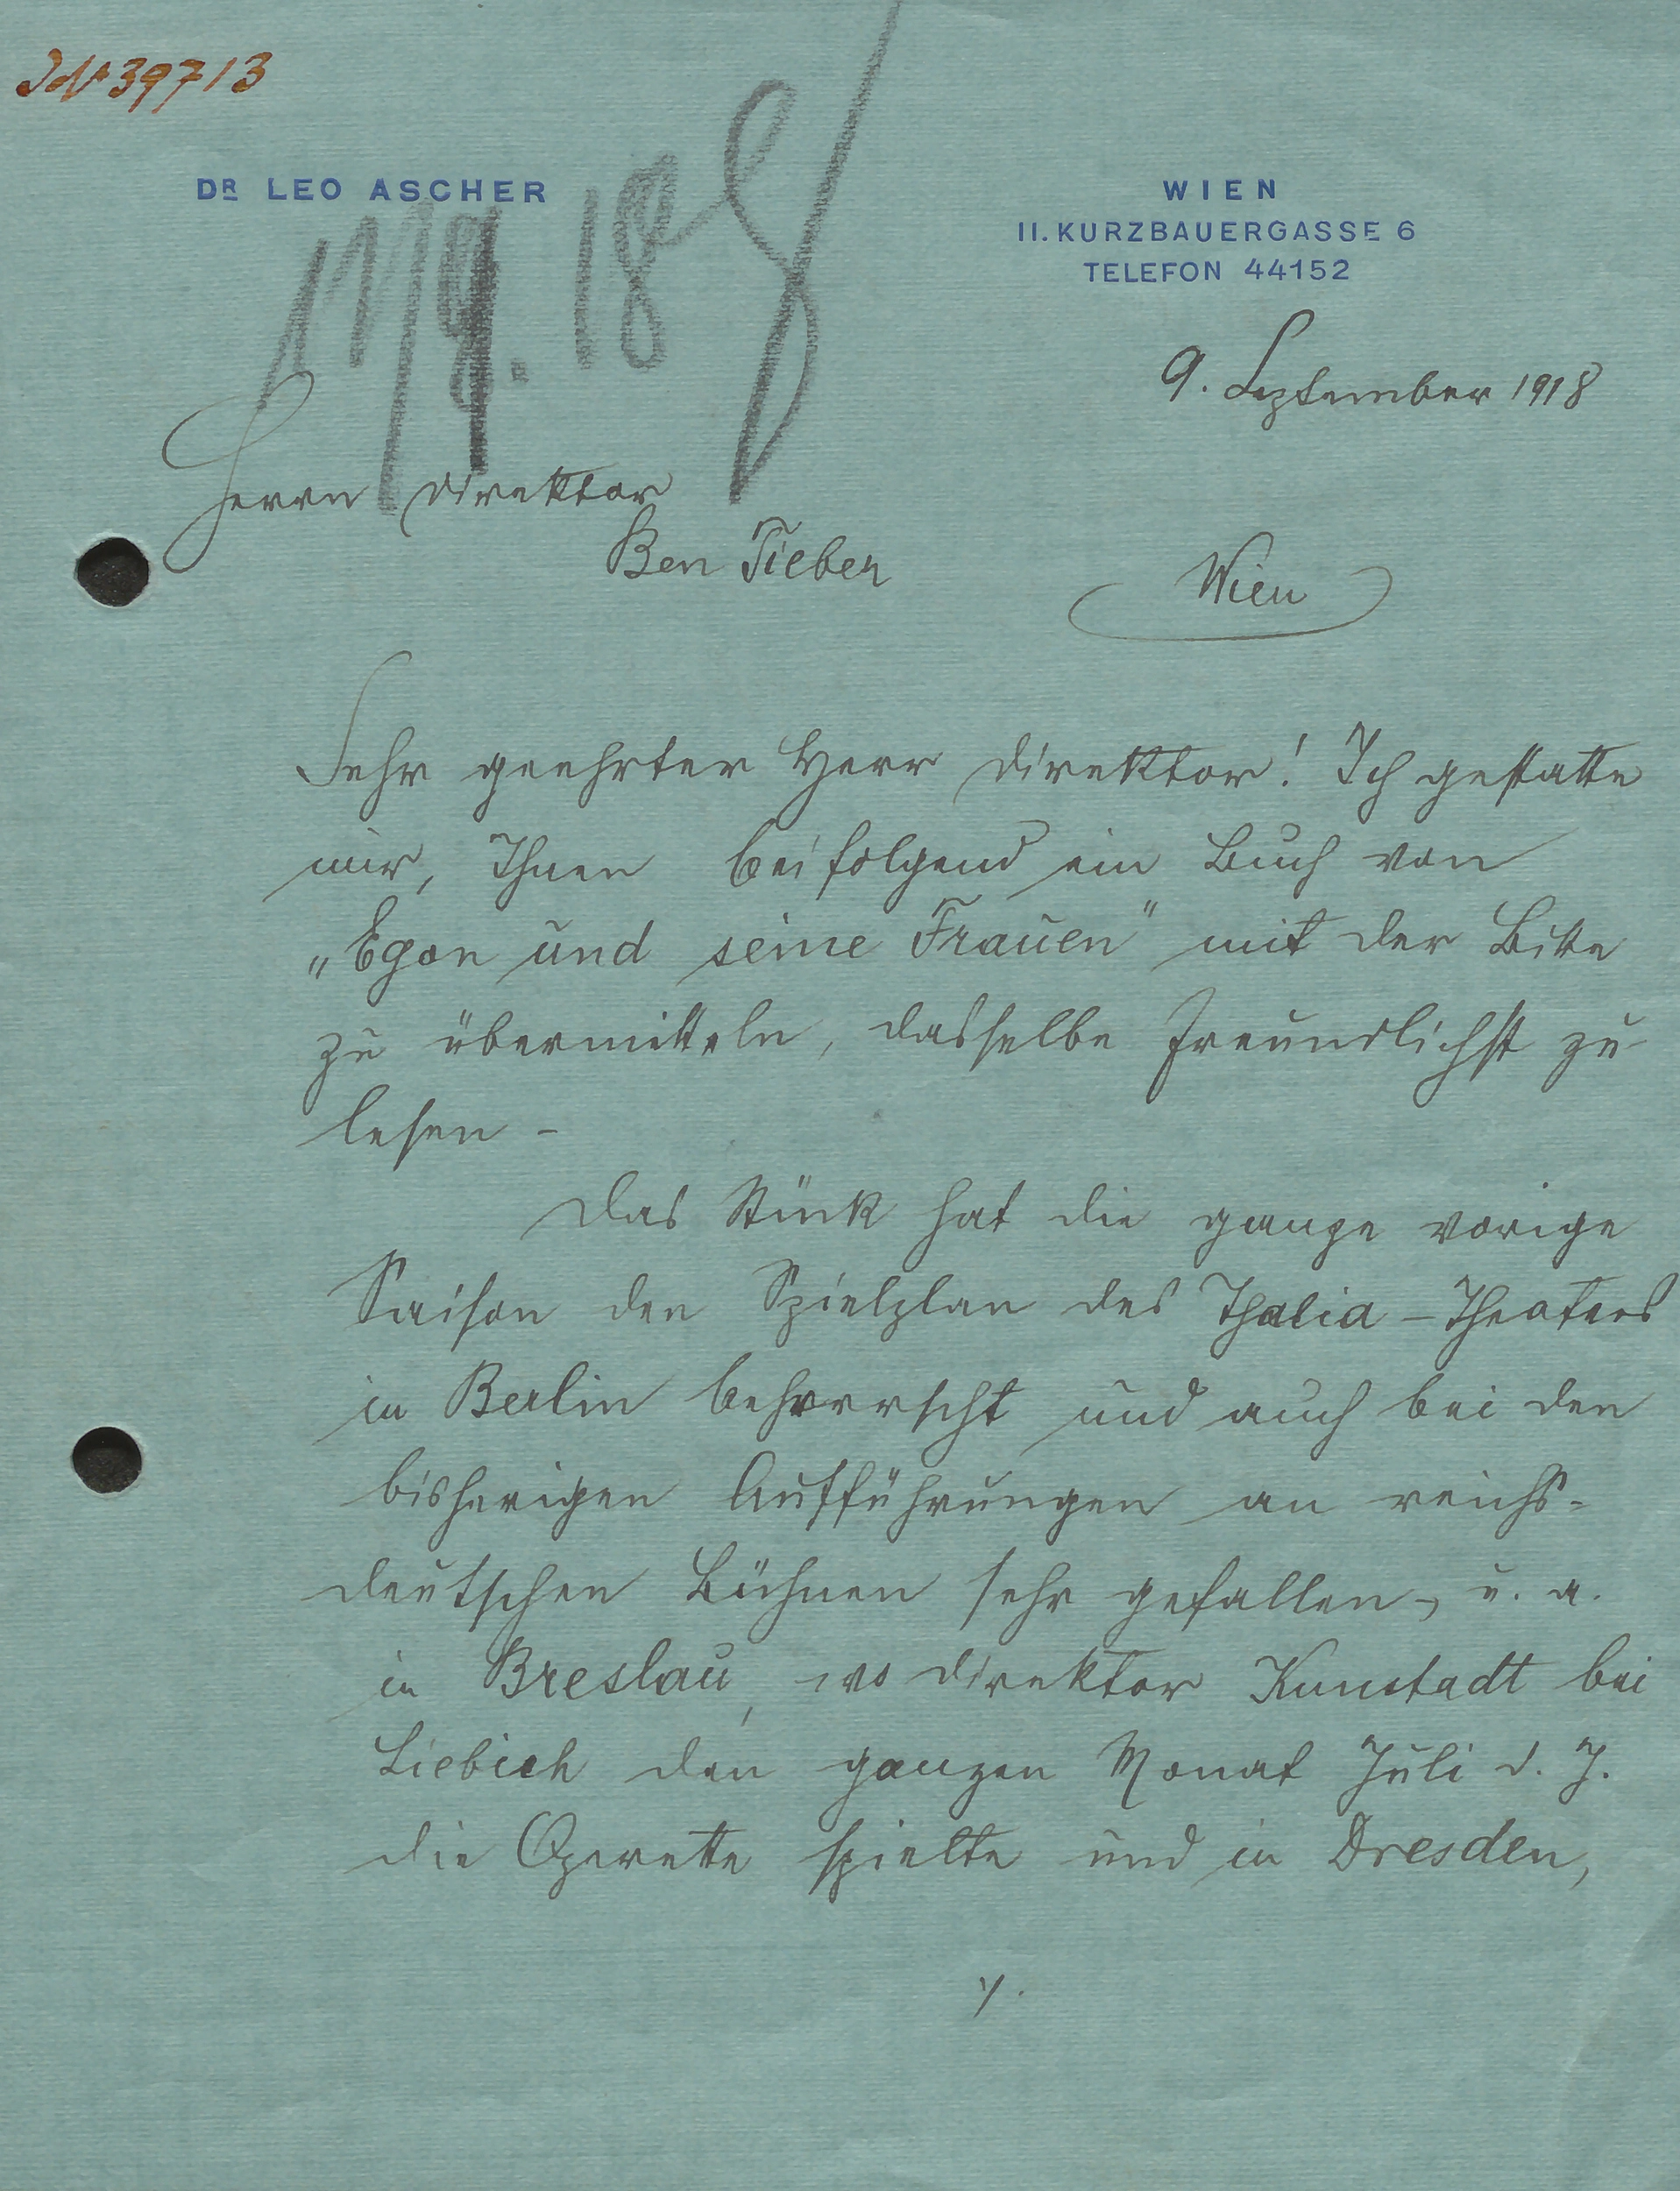 39713
DR LEO ASCHER
WIEN
II. KURZBAUERGASSE 6
TELEFON 44152
11/9. 18
9. September 1918
Herrn Direktor
Ben Tieber
Wien
Sehr geehrter Herr Direktor! Ich gestatte
mir, Ihnen beifolgend ein Buch von
„Egon und seine Frauen" mit der Bitte
zu übermitteln, dasselbe freundlichst zu
lesen –
Das Stück hat die ganze vorige
Saison den Spielplan des Thalia-Theaters
in Berlin beherrscht und auch bei den
bisherigen Aufführungen an reichs-
deutschen Bühnen sehr gefallen, u. a.
in Breslau, wo Direktor Kunstadt bei
Liebich den ganzen Monat Juli d. J.
die Operette spielte und in Dresden,